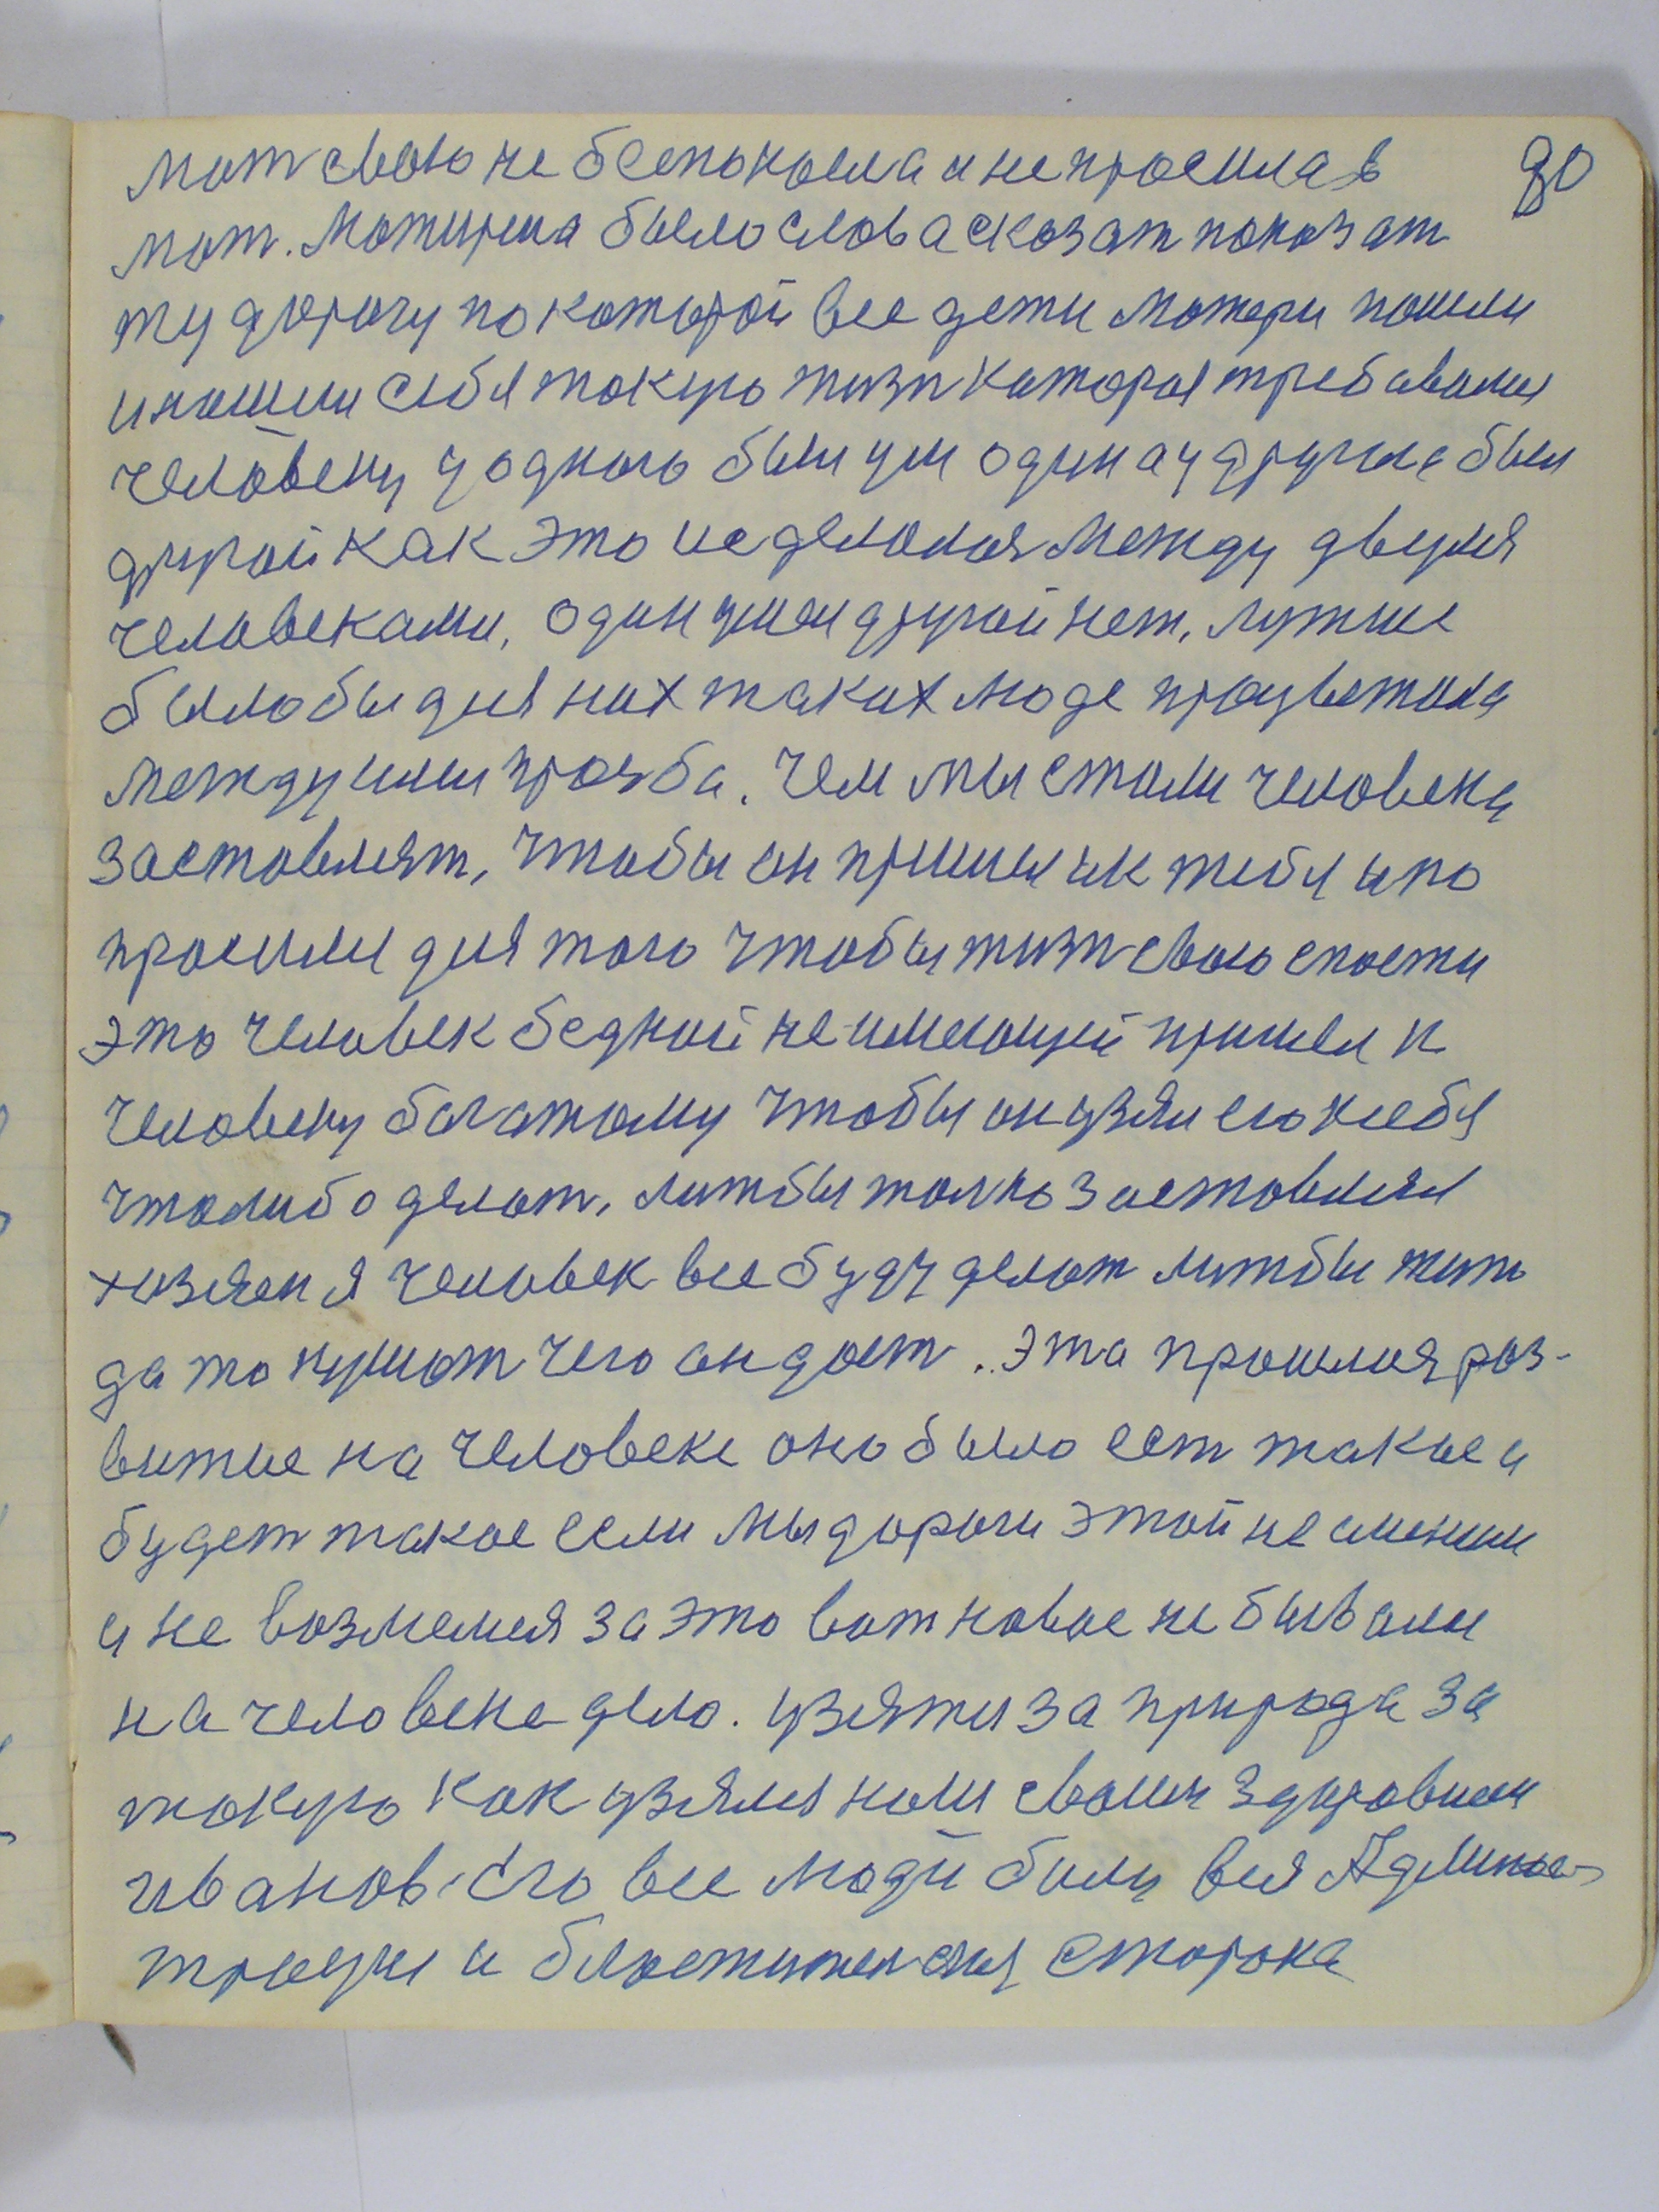 80
мат свою не беспокоел а и не просила в
мат. Матирина было слова сказат показат
ту дорогу по каторой все дети матери пошли
инашли себя такую жизн каторая требавалия
человеку у одного был ум один а у другого был
другой как это не делолоя между двумя
человеками, один умел другой нет, лутшие
было бы для них таких люде процветала
между ими прозба. Чем мы стали человека
заставлят, чтобы он пришел ик тебя ипо
просили для того чтобы жизн свою спасти
это человек бедной не имеющей пришел к
человеку багатому чтобы он узял его ксебя
чтолибо делат, литбы толко заставлял
хазяен я человек все буду делат литбы жит
да то кушат чего он дает. Эта прошлоя раз-
витие на человеке оно было ест такое и
будет такое если мы дароги этой не сменим
и не возмемся за это вот новое не бывали
на человека дело. узятся за природа за
такую как узялся ным своим здоровием
иванов. Его все люди били вся Админис-
трацыи и блюстительная сторона